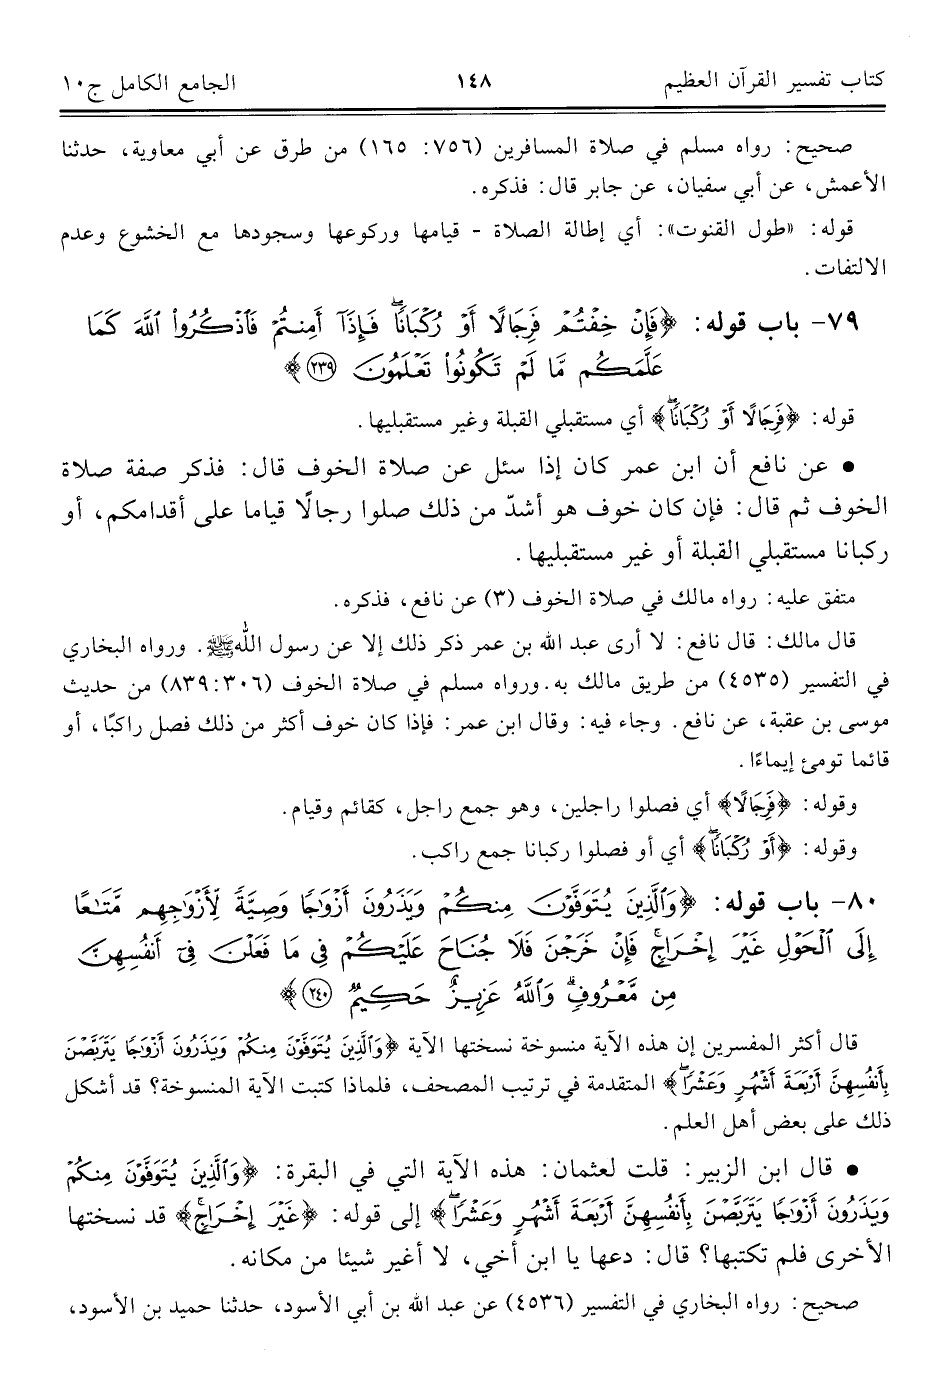 كتاب تفسير القرآن العظيم ١٤٨ الجامع الكامل ج١٠
صحيح: رواه مسلم في صلاة المسافرين (٧٥٦: ١٦٥) من طرق عن أبي معاوية، حدثنا
الأعمش، عن أبي سفيان، عن جابر قال: فذكره.
قوله: «طول القنوت»: أي إطالة الصلاة - قيامها وركوعها وسجودها مع الخشوع وعدم
الالتفات.
٧٩- باب قوله: ﴿فَإِنْ خِفْتُمْ فَرِجَالًا أَوْ رُكْبَانًاۖ فَإِذَآ أَمِنتُمْ فَٱذْكُرُوا۟ ٱللَّهَ كَمَا
عَلَّمَكُم مَّا لَمْ تَكُونُوا۟ تَعْلَمُونَ (٢٣٩)﴾
قوله: ﴿فَرِجَالًا أَوْ رُكْبَانًاۖ﴾ أي مستقبلي القبلة وغير مستقبليها.
• عن نافع أن ابن عمر كان إذا سئل عن صلاة الخوف قال: فذكر صفة صلاة
الخوف ثم قال: فإن كان خوف هو أشدّ من ذلك صلوا رجالًا قياما على أقدامكم، أو
ركبانا مستقبلي القبلة أو غير مستقبليها.
متفق عليه: رواه مالك في صلاة الخوف (٣) عن نافع، فذكره.
قال مالك: قال نافع: لا أرى عبد الله بن عمر ذكر ذلك إلا عن رسول اللهﷺ. ورواه البخاري
في التفسير (٤٥٣٥) من طريق مالك به. ورواه مسلم في صلاة الخوف (٨٣٩:٣٠٦) من حديث
موسى بن عقبة، عن نافع. وجاء فيه: وقال ابن عمر: فإذا كان خوف أكثر من ذلك فصل راكبًا، أو
قائما تومئ إيماءًا.
وقوله: ﴿فَرِجَالًا﴾ أي فصلوا راجلين، وهو جمع راجل، كقائم وقيام.
وقوله: ﴿أَوْ رُكْبَانًاۖ﴾ أي أو فصلوا ركبانا جمع راكب.
٨٠- باب قوله: ﴿وَٱلَّذِينَ يُتَوَفَّوْنَ مِنكُمْ وَيَذَرُونَ أَزْوَٰجًا وَصِيَّةً لِّأَزْوَٰجِهِم مَّتَٰعًا
إِلَى ٱلْحَوْلِ غَيْرَ إِخْرَاجٍۚ فَإِنْ خَرَجْنَ فَلَا جُنَاحَ عَلَيْكُمْ فِى مَا فَعَلْنَ فِىٓ أَنفُسِهِنَّ
مِن مَّعْرُوفٍۗ وَٱللَّهُ عَزِيزٌ حَكِيمٌ (٢٤٠)﴾
قال أكثر المفسرين إن هذه الآية منسوخة نسختها الآية ﴿وَٱلَّذِينَ يُتَوَفَّوْنَ مِنكُمْ وَيَذَرُونَ أَزْوَٰجًا يَتَرَبَّصْنَ
بِأَنفُسِهِنَّ أَرْبَعَةَ أَشْهُرٍ وَعَشْرًاۖ﴾ المتقدمة في ترتيب المصحف، فلماذا كتبت الآية المنسوخة؟ قد أشكل
ذلك على بعض أهل العلم.
• قال ابن الزبير: قلت لعثمان: هذه الآية التي في البقرة: ﴿وَٱلَّذِينَ يُتَوَفَّوْنَ مِنكُمْ
وَيَذَرُونَ أَزْوَٰجًا يَتَرَبَّصْنَ بِأَنفُسِهِنَّ أَرْبَعَةَ أَشْهُرٍ وَعَشْرًاۖ﴾ إلى قوله: ﴿غَيْرَ إِخْرَاجٍۚ﴾ قد نسختها
الأخرى فلم تكتبها؟ قال: دعها يا ابن أخي، لا أغير شيئا من مكانه.
صحيح: رواه البخاري في التفسير (٤٥٣٦) عن عبد الله بن أبي الأسود، حدثنا حميد بن الأسود،